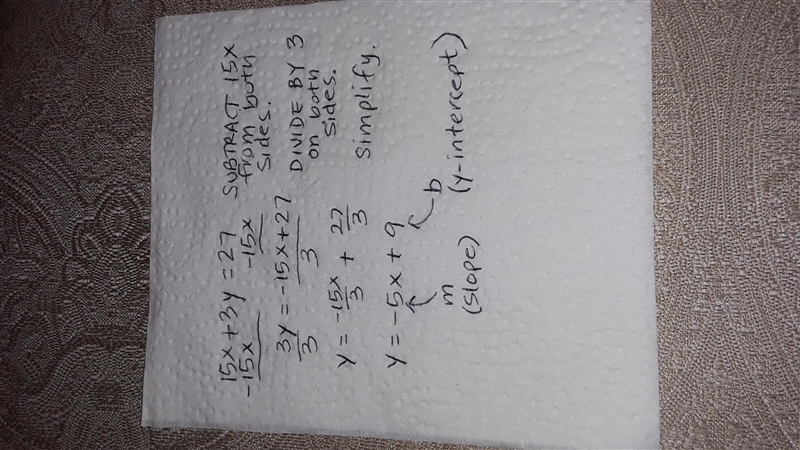 15x + 3y = 27 SUBTRACT 15x
-15x -15x from both
sides.
3y = -15x + 27 DIVIDE BY 3
3 3 on both
sides.
y = -15x/3 + 27/3 simplify.
y = -5x + 9
m b
(slope) (y-intercept)